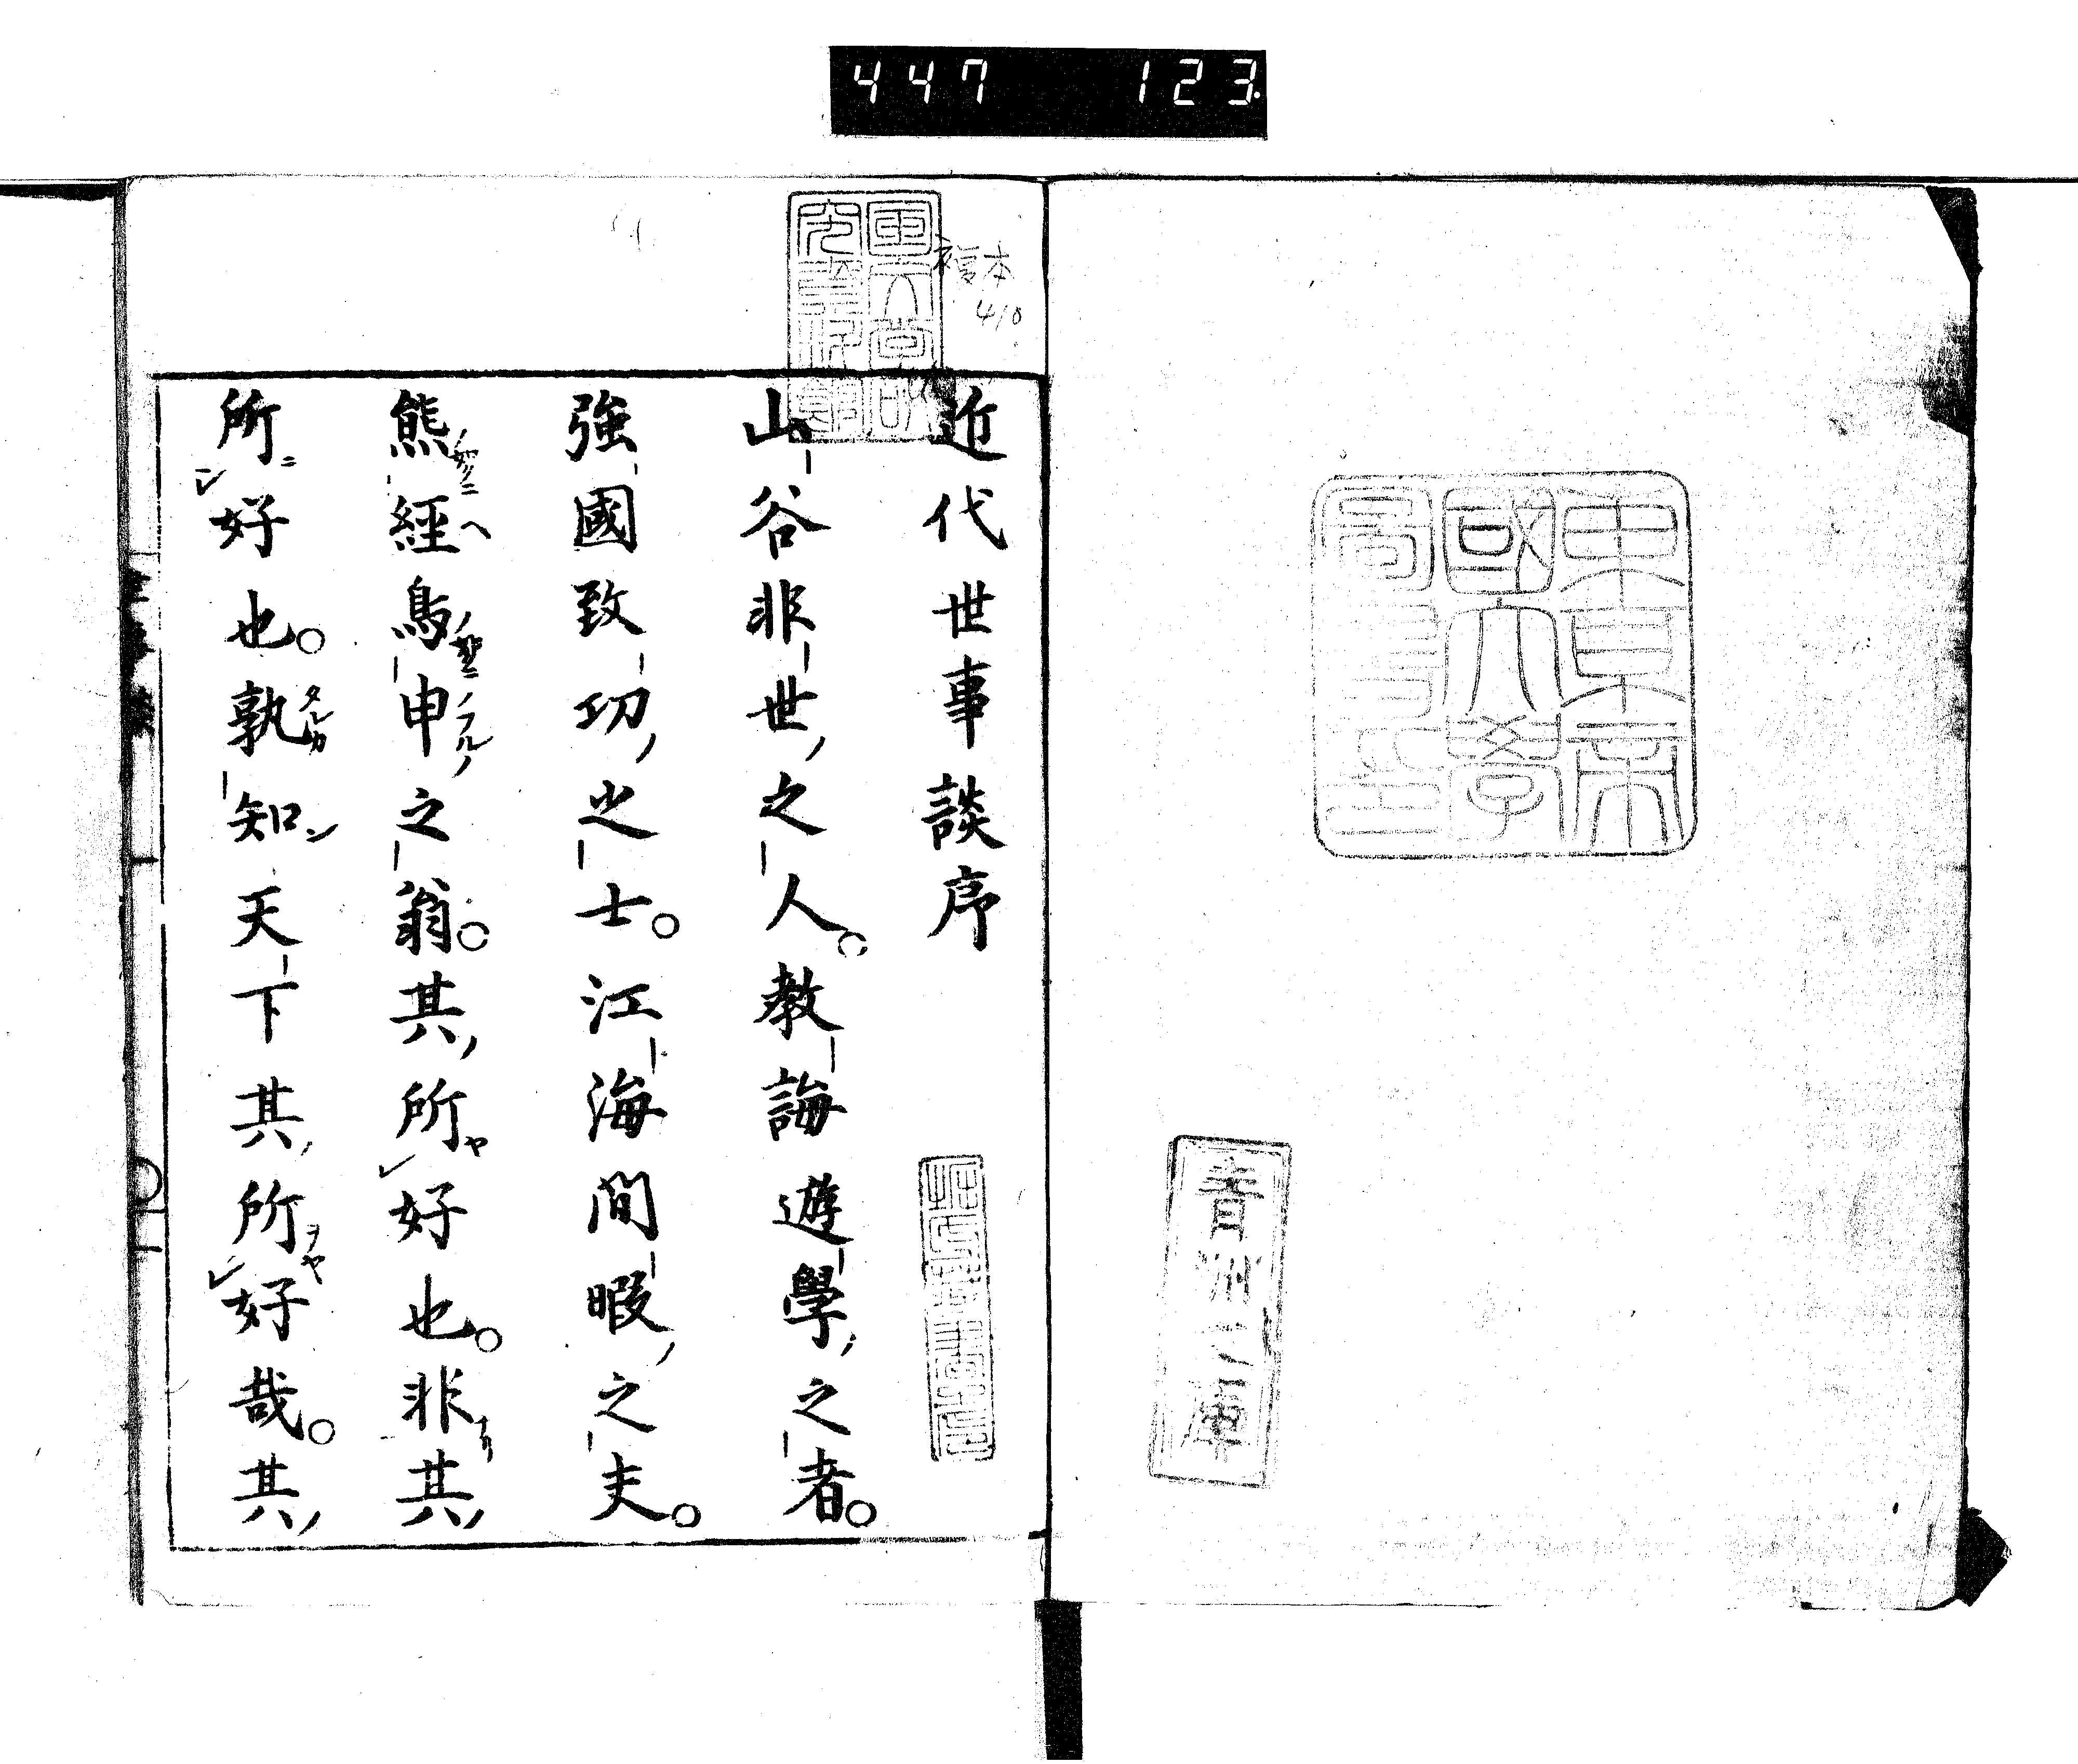 447 123
東京帝
國大學
圖書印
青洲文庫
複本
410
近代世事談序
山谷非世之人。教誨遊學之者。
強國致功之士。江海間暇之夫。
熊經鳥申之翁。其所好也。非其
所好也。孰知天下其所好哉。其